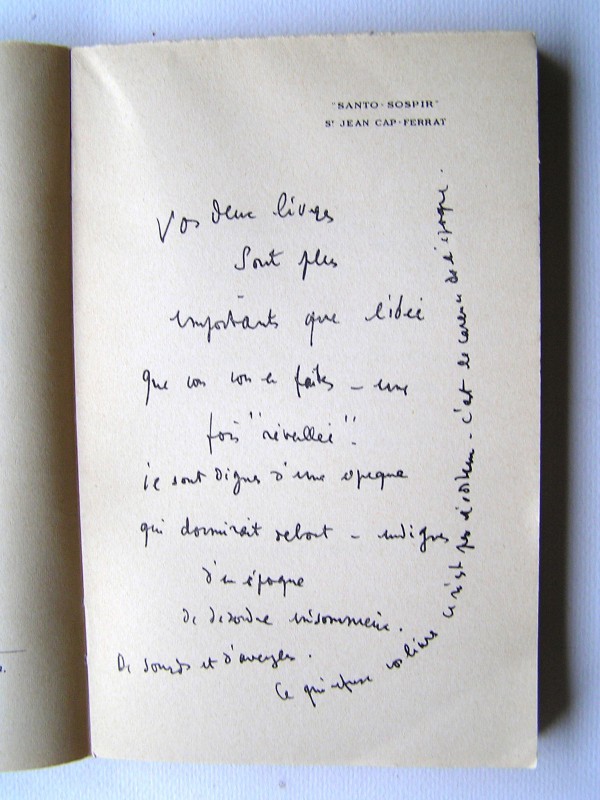 "SANTO-SOSPIR"
Sᵗ JEAN CAP-FERRAT
Vos deux livres
sont plus
importants que l'idée
que vous vous en faites – une
fois "réveillée".
ils sont dignes d'une époque
qui dormirait debout – indignes
d'un époque
de désordre insomniaque.
De sourds et d'aveugles.
Ce qui vos livres ce n'est pas – c'est la carence de l'époque.